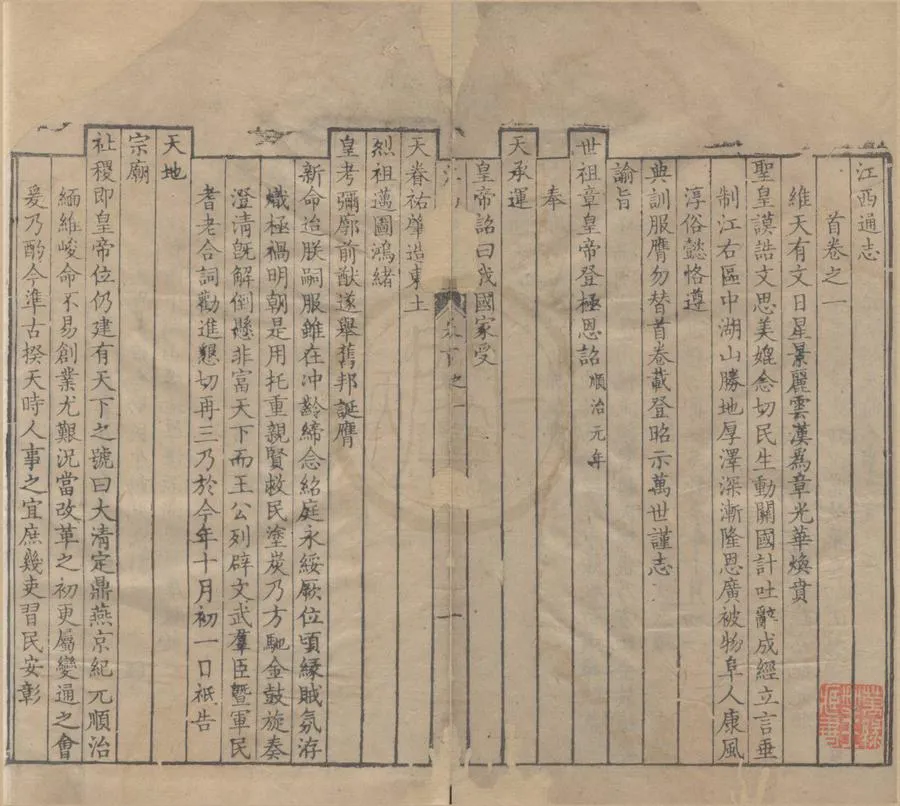 江西通志
首卷之一
維天有文日星景麗雲漢為章光華煥賁
聖皇謨誥文思美媲念切民生動關國計吐辭成經立言垂
制江右區中湖山勝地厚澤深漸隆恩廣被物阜人康風
淳俗懿恪遵
典訓服膺勿替首卷載登昭示萬世謹志
諭旨
世祖章皇帝登極恩詔順治元年
奉
天承運
皇帝詔曰我國家受
卷 之一
一
天眷祐肇造東土
烈祖邁圖鴻緒
皇考彌廓前猷遂舉舊邦誕膺
新命迨朕嗣服雖在冲齡締念紹庭永綏厥位頃緣賊氛洊
熾極禍明朝是用托重親賢救民塗炭乃方馳金鼓旋奏
澄清旣解倒懸非富天下而王公列辟文武羣臣暨軍民
耆老合詞勸進懇切再三乃於今年十月初一日祇告
天地
宗廟
社稷即皇帝位仍建有天下之號曰大清定鼎燕京紀元順治
緬維峻命不易創業尤艱況當改革之初更屬變通之會
爰乃酌今準古揆天時人事之宜庶幾吏習民安彰